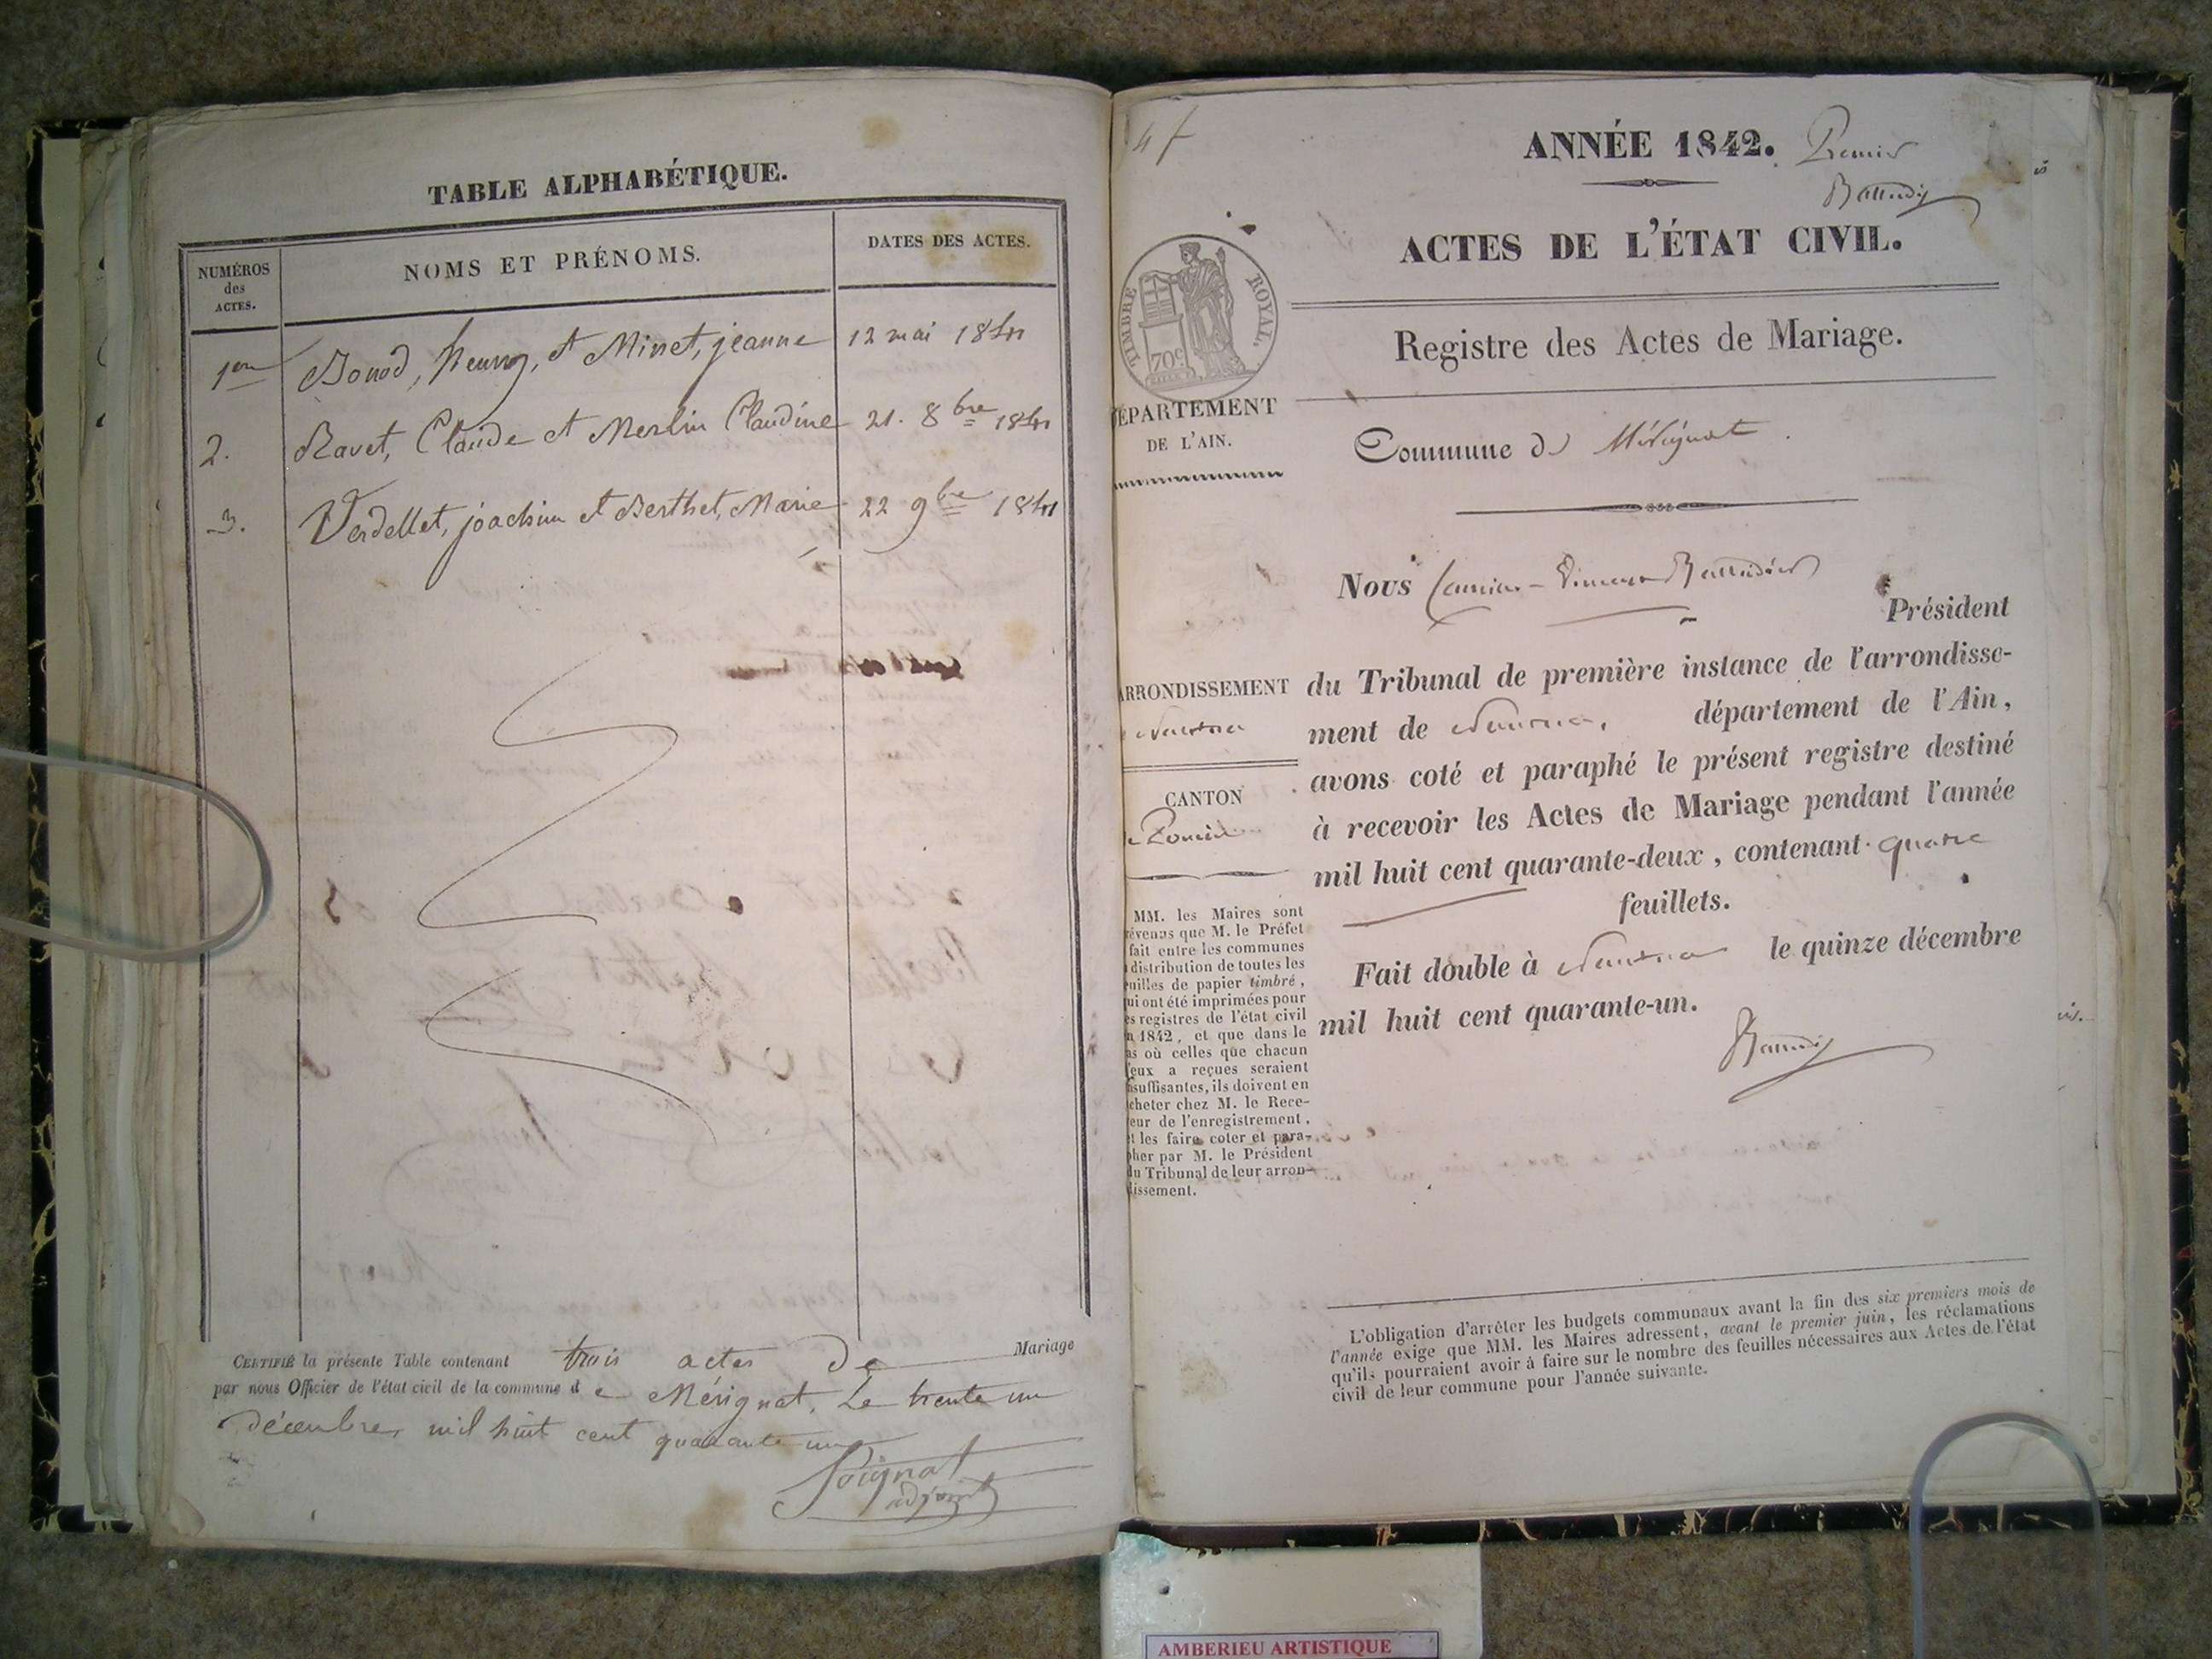 TABLE ALPHABÉTIQUE.
NUMÉROS
des
ACTES.
NOMS ET PRÉNOMS.
DATES DES ACTES.
1er Bonod, et Minet, jeanne 12 mai 1841
2. Ravet, Claude et Merlin Claudine 21. 8bre 1841
3. Verdellet, joachim et Berthet, Marie 22 9bre 1841
CERTIFIÉ la présente Table contenant trois actes de Mariage
par nous Officier de l'état civil de la commune de Mérignat. Le trente un
décembre mil huit cent quarante un
Soignat
adjoint
47
ANNÉE 1842. Premier
ACTES DE L'ÉTAT CIVIL.
TIMBRE ROYAL.
70c
Registre des Actes de Mariage.
DÉPARTEMENT
DE L'AIN.
Commune de Mérignat.
Nous
Président
ARRONDISSEMENT
Nantua
CANTON
Poncin
du Tribunal de première instance de l'arrondisse-
ment de Nantua, département de l'Ain,
avons coté et paraphé le présent registre destiné
à recevoir les Actes de Mariage pendant l'année
mil huit cent quarante-deux, contenant quatre
feuillets.
Fait double à Nantua le quinze décembre
mil huit cent quarante-un.
MM. les Maires sont
révenus que M. le Préfet
fait entre les communes
distribution de toutes les
euilles de papier timbré,
ui ont été imprimées pour
es registres de l'état civil
n 1842, et que dans le
as où celles que chacun
'eux a reçues seraient
nsuffisantes, ils doivent en
cheter chez M. le Rece-
eur de l'enregistrement,
t les faire coter et para-
pher par M. le Président
du Tribunal de leur arron-
dissement.
L'obligation d'arrêter les budgets communaux avant la fin des six premiers mois de
l'année exige que MM. les Maires adressent, avant le premier juin, les réclamations
qu'ils pourraient avoir à faire sur le nombre des feuilles nécessaires aux Actes de l'état
civil de leur commune pour l'année suivante.
AMBERIEU ARTISTIQUE